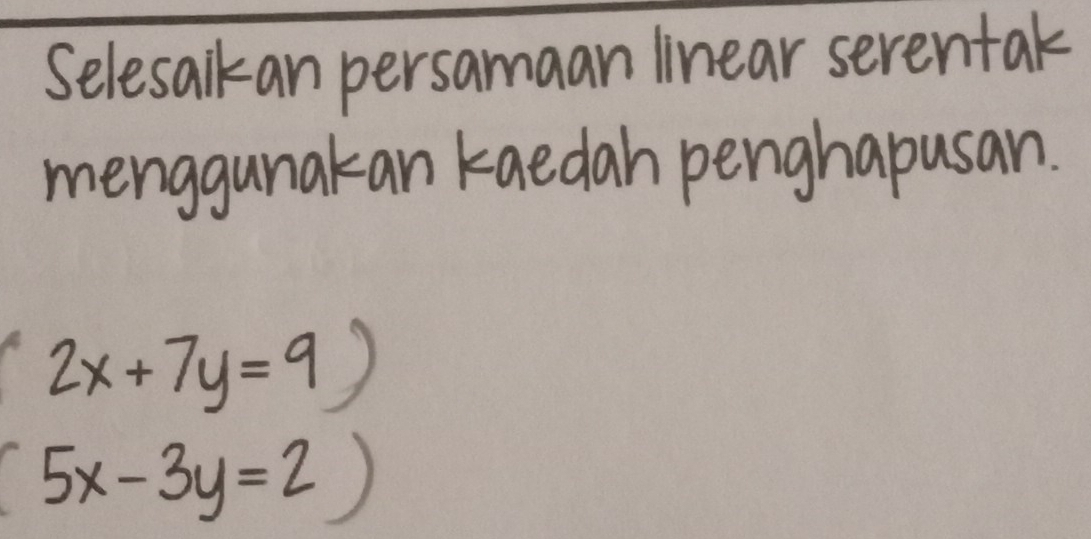 Selesaikan persamaan linear serentak
menggunakan kaedah penghapusan.
(2x + 7y = 9)
(5x - 3y = 2)